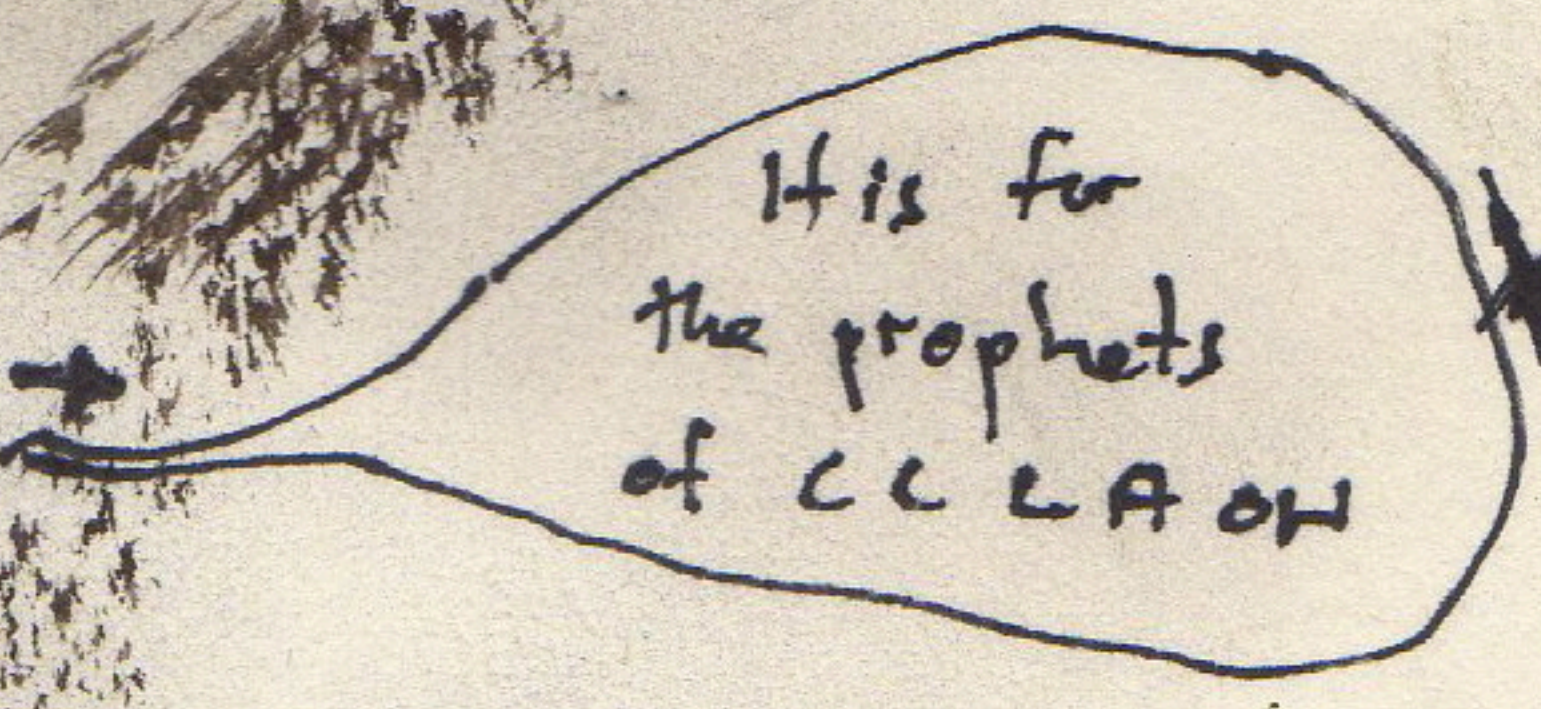 It is for
the prophets
of CCLAOW